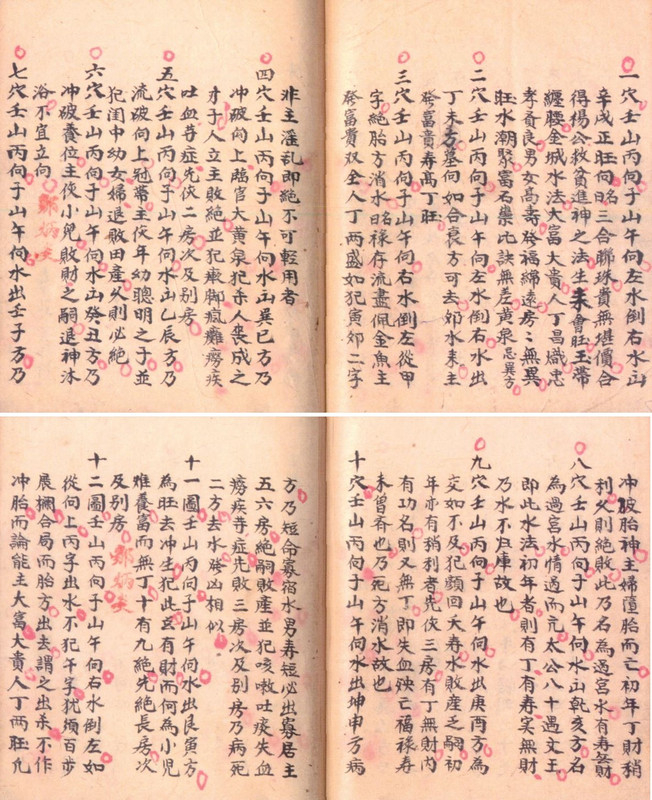 一穴壬山丙向子山午向左水倒右水出
辛戌正旺向名曰三合聯珠貴無堪價合
得楊公救貧進神之法生來會旺玉帶
纏腰金城水法大富大貴人丁昌熾忠
孝賢良男女高壽發福綿遠房房無異
旺水潮聚富石崇比訣無差黃泉忌巽方
二穴壬山丙向子山午向左水倒右水出
丁未方墓向如合衰方可去郊水来主
發富貴壽高丁旺
三穴壬山丙向子山午向右水倒左從甲
字絕胎方消水名曰禄存流盡佩金魚主
發富貴双全人丁兩盛如犯寅郊二字
非主淫乱即絕不可輕用者
四穴壬山丙向子山午向水出巽巳方乃
冲破向上臨官大黄泉犯杀人喪成之
才子人立主敗絕並犯瘷脚瘋癱癆疾
吐血等症先侠二房次及別房
五穴壬山丙向子山午向水出乙辰方乃
流破向上冠帶主侠年幼聰明之子並
犯闺中幼女婦退敗田產久則必絕
六穴壬山丙向子山午向水出癸丑方乃
冲破養位主侠小兒敗財之嗣退神沐
浴不宜立向
鄭炳炎
七穴壬山丙向子山午向水出壬子方乃
冲破胎神主婦隨胎而亡初年丁財稍
利久則絕敗此乃名為過宮水有壽無財
八穴壬山丙向子山午向水出乾亥方名
為過宮水情過而亢太公八十遇文王
即此水法初年者則有丁有壽実無財
乃水不归庫故也
九穴壬山丙向子山午向水出庚酉方為
交如不及犯顔回夭寿水敗産之嗣初
年亦有稍利者先侠三房有丁無財内
有功名則又無丁即失血殃亡福禄寿
未曽齐也乃死方消水故也
十穴壬山丙向子山午向水出坤申方病
方乃短命寡宿水男寿短必出寡居主
五六房絕嗣敗產並犯咳嗽吐痰失血
癆疾等症先敗三房次及別房乃病死
二方去水發凶相似
十一圖壬山丙向子山午向水出艮寅方
為旺去冲生犯此虽有財而何為小兒
难養富而無丁十有九絕先絕長房次
及別房
鄭炳炎
十二圖壬山丙向子山午向右水倒左如
從向上丙字出水不犯午字犹須百步
展欄合局而胎方出去謂之出杀不作
冲胎而論能主大富大貴人丁兩旺凢